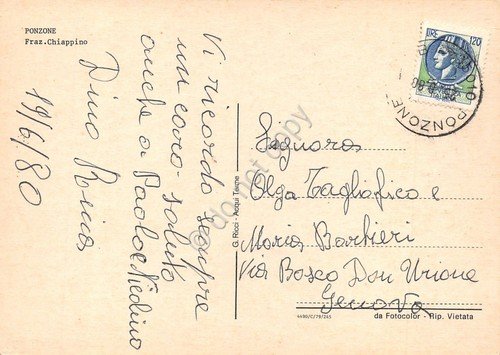 PONZONE
Fraz.Chiappino
Vi ricordo sempre
un caro saluto
anche a Paolo e
Dino Rina
19/6/80
G. Ricci - Acqui Terme
LIRE 120
PONZONE
Signora
Olga Tagliafico e
Maria Barbieri
Via Bosco Don Orione
Genova
4490/C/79/245
da Fotocolor - Rip. Vietata
do not copy